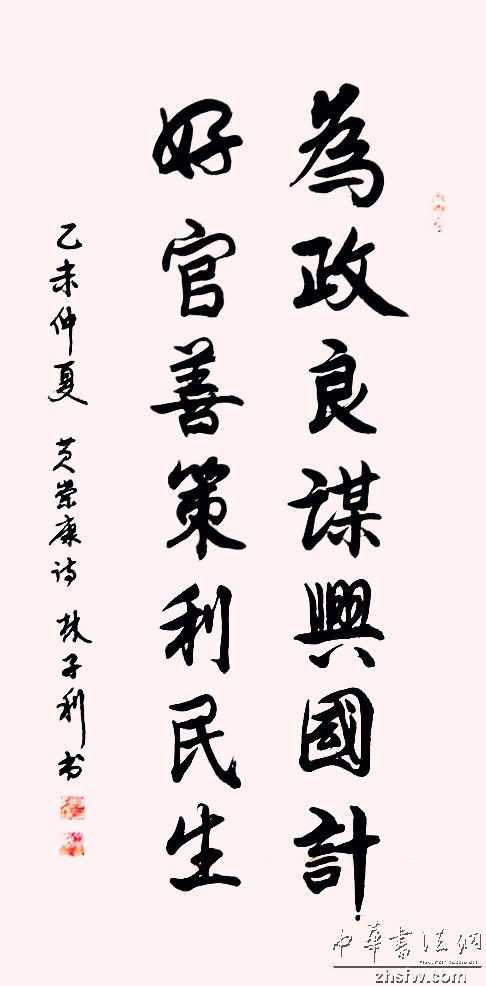 為政良謀興國計
好官善策利民生
乙未仲夏 黄崇康诗 林子利书
中华书法网
zhsfw.com